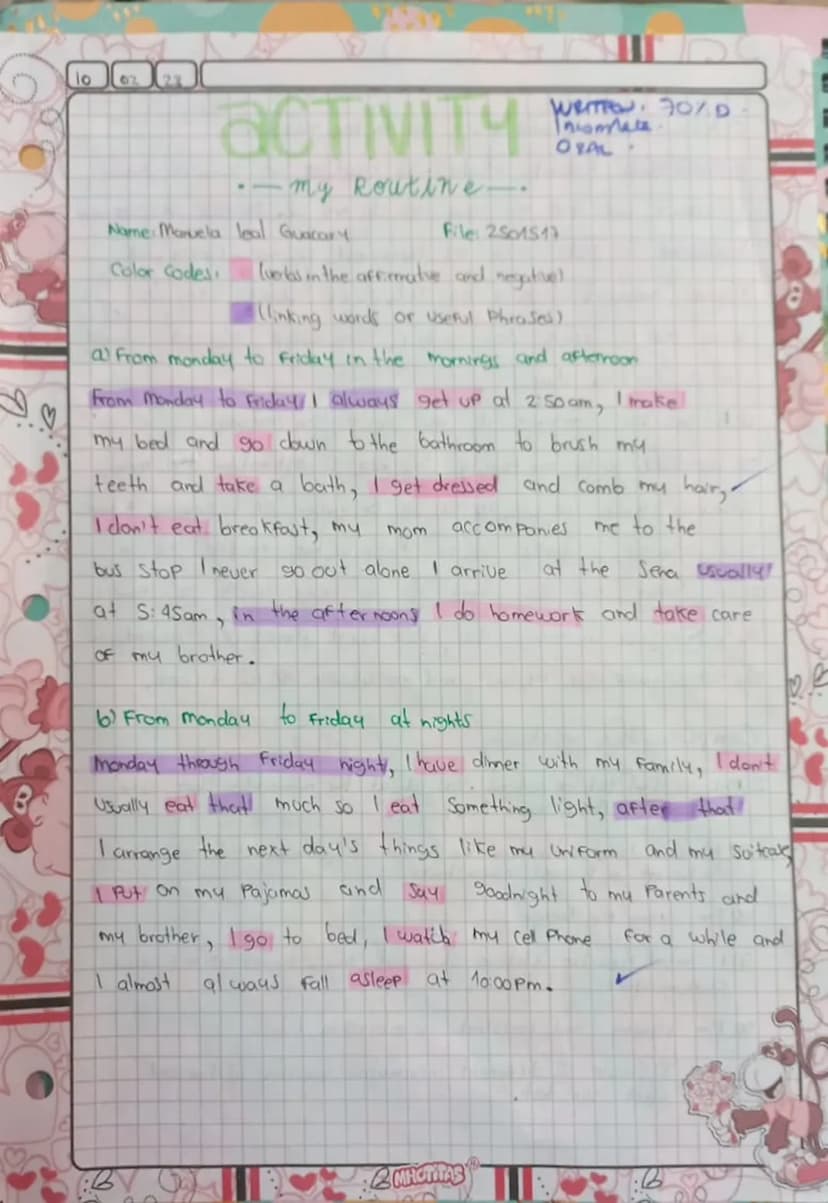 10 02 23
ACTIVITY
WRITTEN: 70% D
Incomplete.
ORAL.
.— My Routine —.
Name: Manuela leal Guacary File: 2501517
Color Codes: (verbs in the affirmative and negative)
(linking words or useful Phrases)
a) From monday to Friday in the mornings and afternoon
From Monday to Friday I always get up at 2:50am, I make
my bed and go down to the bathroom to brush my
teeth and take a bath, I get dressed and comb my hair,
I don't eat breakfast, my mom accompanies me to the
bus stop I never go out alone I arrive at the Sena usually
at 5:45am, in the afternoons I do homework and take care
of my brother.
b) From monday to Friday at nights
Monday through Friday night, I have dinner with my family, I don't
usually eat that much so I eat something light, after that
I arrange the next day's things like my uniform and my suitcase
I Put on my Pajamas and say goodnight to my Parents and
my brother, I go to bed, I watch my cell Phone for a while and
I almost always fall asleep at 10:00pm.
MHOTITAS